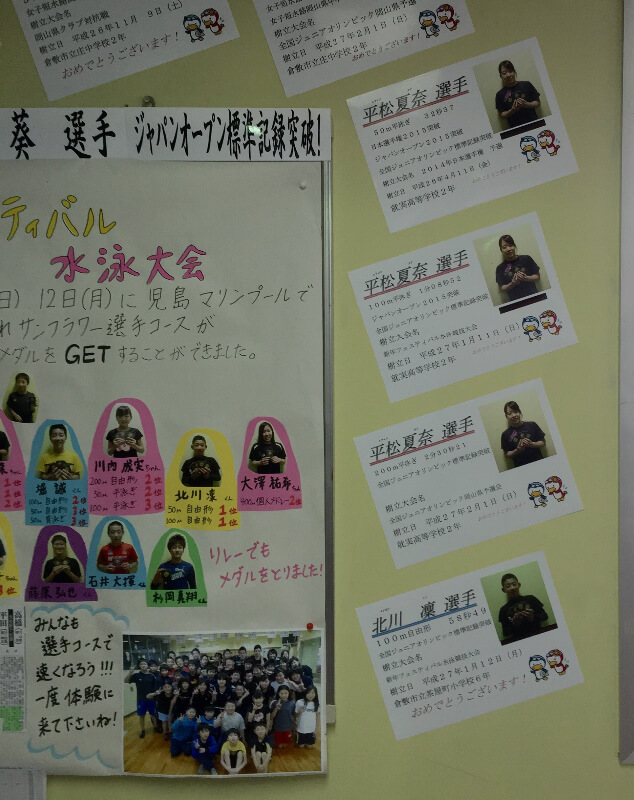 岡山県クラブ対抗戦
樹立日 平成26年11月 9日(土)
倉敷市立庄中学校2年
おめでとうございます!
樹立大会名
全国ジュニアオリンピック岡山県予選
樹立日 平成27年2月1日(日)
倉敷市立庄中学校2年
おめでとうございます!
葵 選手 ジャパンオープン標準記録突破!
ティバル
水泳大会
日) 12日(月)に 児島 マリンプールで
れ サンフラワー選手コースが
メダルを GETすることができました。
川内 Ms
200m 自由形 2位
50m 平泳ぎ 2位
100m 平泳ぎ 3位
堀 誠くん
100m 自由形 2位
北川 凜くん
50m 自由形 1位
100m 自由形 1位
400m個人メドレー2位
石井 大輝くん
杉岡 真翔くん
リレーでも
メダルをとりました!
みんなも
選手コースで
速くなろう!!!
一度 体験に
来て下さいね!
平松夏奈 選手
50m平泳ぎ 32秒37
日本選手権2015突破
ジャパンオープン2015突破
全国ジュニアオリンピック標準記録突破
樹立大会名 2014年日本選手権 予選
樹立日 平成26年4月11日(金)
就実高等学校2年
おめでとうございます!
平松夏奈 選手
100m平泳ぎ 1分08秒52
ジャパンオープン2015突破
全国ジュニアオリンピック標準記録突破
樹立大会名
新年フェスティバル水泳競技大会
樹立日 平成27年1月11日(日)
就実高等学校2年
おめでとうございます!
平松夏奈 選手
200m平泳ぎ 2分30秒21
全国ジュニアオリンピック標準記録突破
樹立大会名
全国ジュニアオリンピック岡山県予選会
樹立日 平成27年2月1日(日)
就実高等学校2年
おめでとうございます!
北川 凜 選手
100m自由形 58秒49
全国ジュニアオリンピック標準記録突破
樹立大会名
新年フェスティバル水泳競技大会
樹立日 平成27年1月12日(月)
倉敷市立茶屋町小学校6年
おめでとうございます!